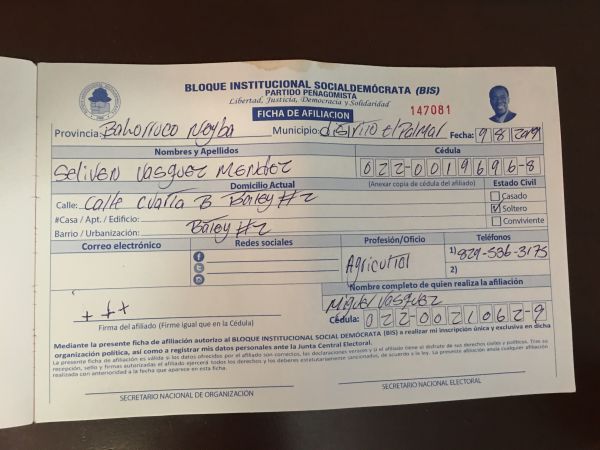 BLOQUE INSTITUCIONAL SOCIALDEMÓCRATA (BIS)
PARTIDO PEÑAGOMISTA
Libertad, Justicia, Democracia y Solidaridad
FICHA DE AFILIACION
147081
Provincia: Bahorruco Neyba Municipio: El Palmar Fecha: 9 8 2019
Nombres y Apellidos Cédula
Seliven Vasquez Mendez 022-0019696-8
Domicilio Actual (Anexar copia de cédula del afiliado) Estado Civil
Calle: Calle Cuarta B Batey #2
Casado
#Casa / Apt. / Edificio:
Soltero
Barrio / Urbanización: Batey #2
Conviviente
Correo electrónico Redes sociales Profesión/Oficio Teléfonos
Agricultol
1) 829-586-3175
2)
Nombre completo de quien realiza la afiliación
Miguel Vasquez
+ + +
Cédula: 022-0021062-9
Firma del afiliado (Firme igual que en la Cédula)
Mediante la presente ficha de afiliación autorizo al BLOQUE INSTITUCIONAL SOCIAL DEMÓCRATA (BIS) a realizar mi inscripción única y exclusiva en dicha
organización política, así como a registrar mis datos personales ante la Junta Central Electoral.
La presente ficha de afiliación es válida si los datos ofrecidos por el afiliado son correctos, las declaraciones versan y él mismo tiene el disfrute de sus derechos civiles y políticos. Tras su
recepción, sello y firmas autorizadas el afiliado ejercerá todos los derechos y los deberes estatutariamente sancionados, de acuerdo a la ley. La presente afiliación anula cualquier afiliación
realizada con anterioridad a la fecha que aparece en esta ficha.
SECRETARIO NACIONAL DE ORGANIZACIÓN
SECRETARIO NACIONAL ELECTORAL